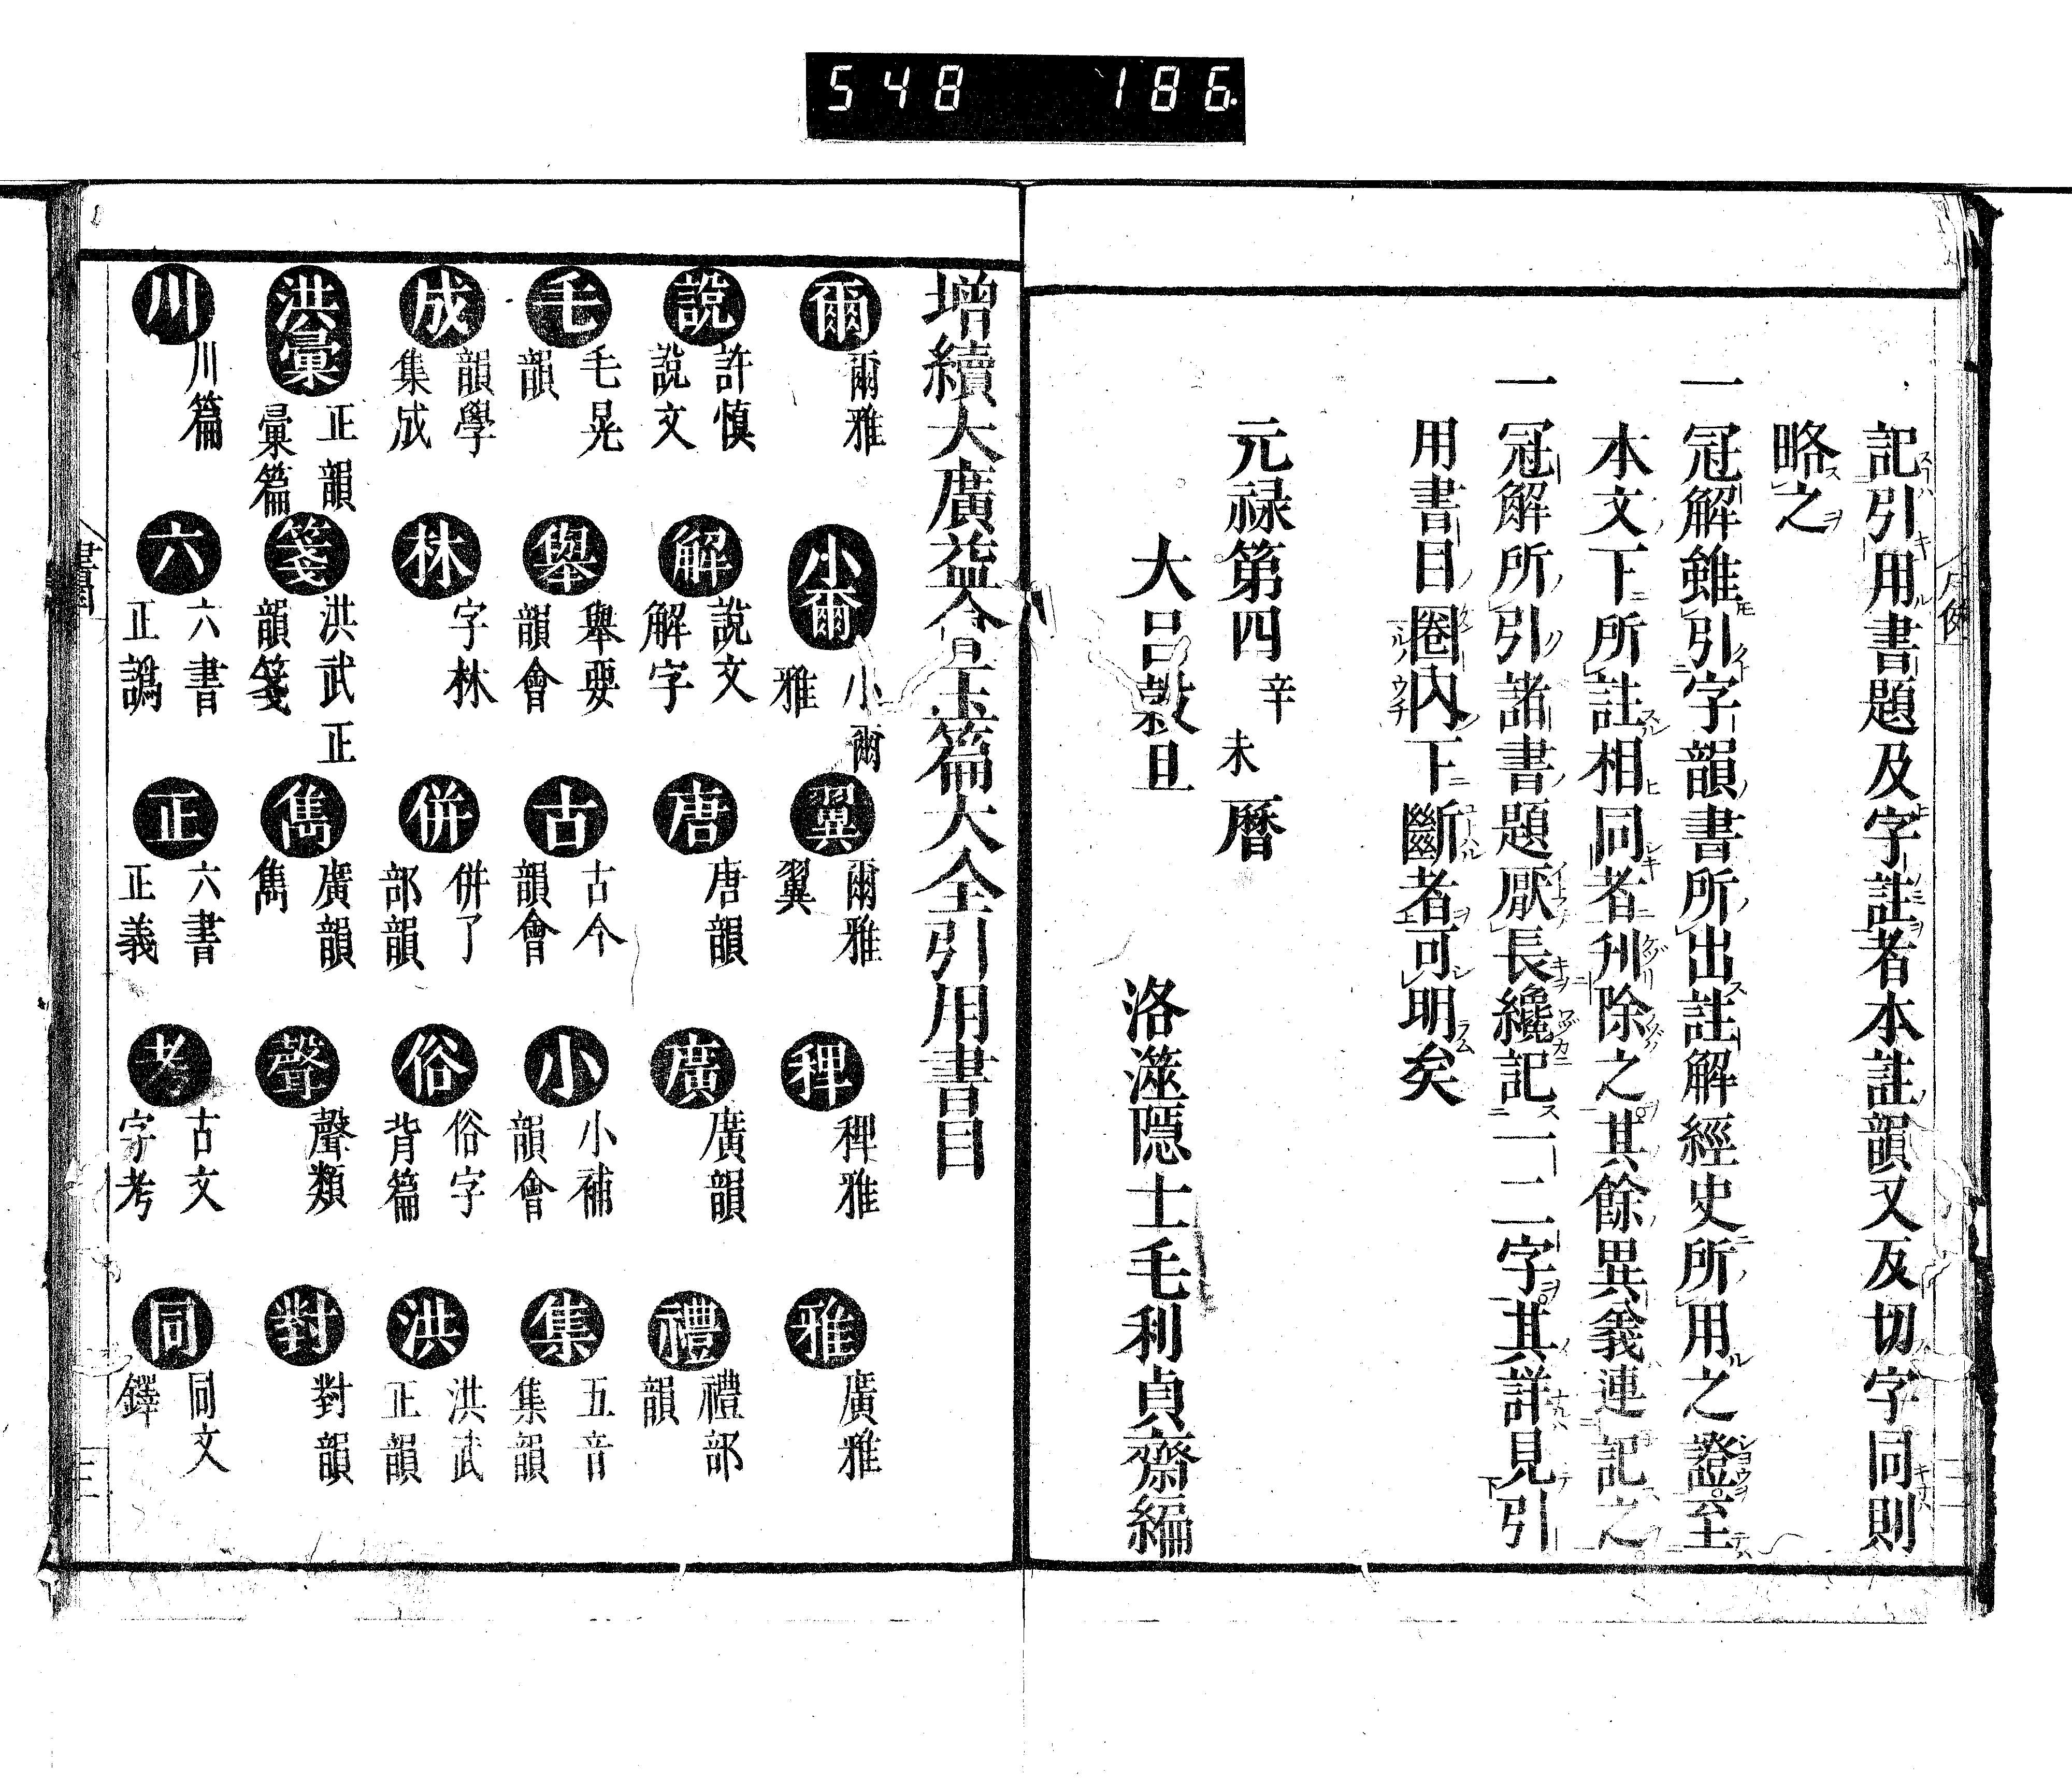 548 186
記引用書題及字註者本註韻又反切字同則
略之
一冠解雖引字韻書所出註解經史所用之證至
本文下所註相同者刋除之其餘異義連記之
一冠解所引諸書題厭長纔記一二字其詳見引
用書目圈內下斷者可明矣
元禄第四辛未曆
大呂穀旦
洛澨隱士毛利貞齋編
增續大廣益會玉篇大全引用書目
爾 爾雅
小爾 小爾雅
翼 爾雅翼
稗 稗雅
雅 廣雅
說 許慎說文
解 說文解字
唐 唐韻
廣 廣韻
禮 禮部韻
毛 毛晃韻
舉 舉要韻會
古 古今韻會
小 小補韻會
集 五音集韻
成 韻學集成
林 字林
併 併了部韻
俗 俗字背篇
洪 洪武正韻
洪彙 正韻彙篇
箋 洪武正韻箋
雋 廣韻雋
聲 聲類
對 對韻
川 川篇
六 六書正譌
正 六書正義
考 古文字考
同 同文鐸
三